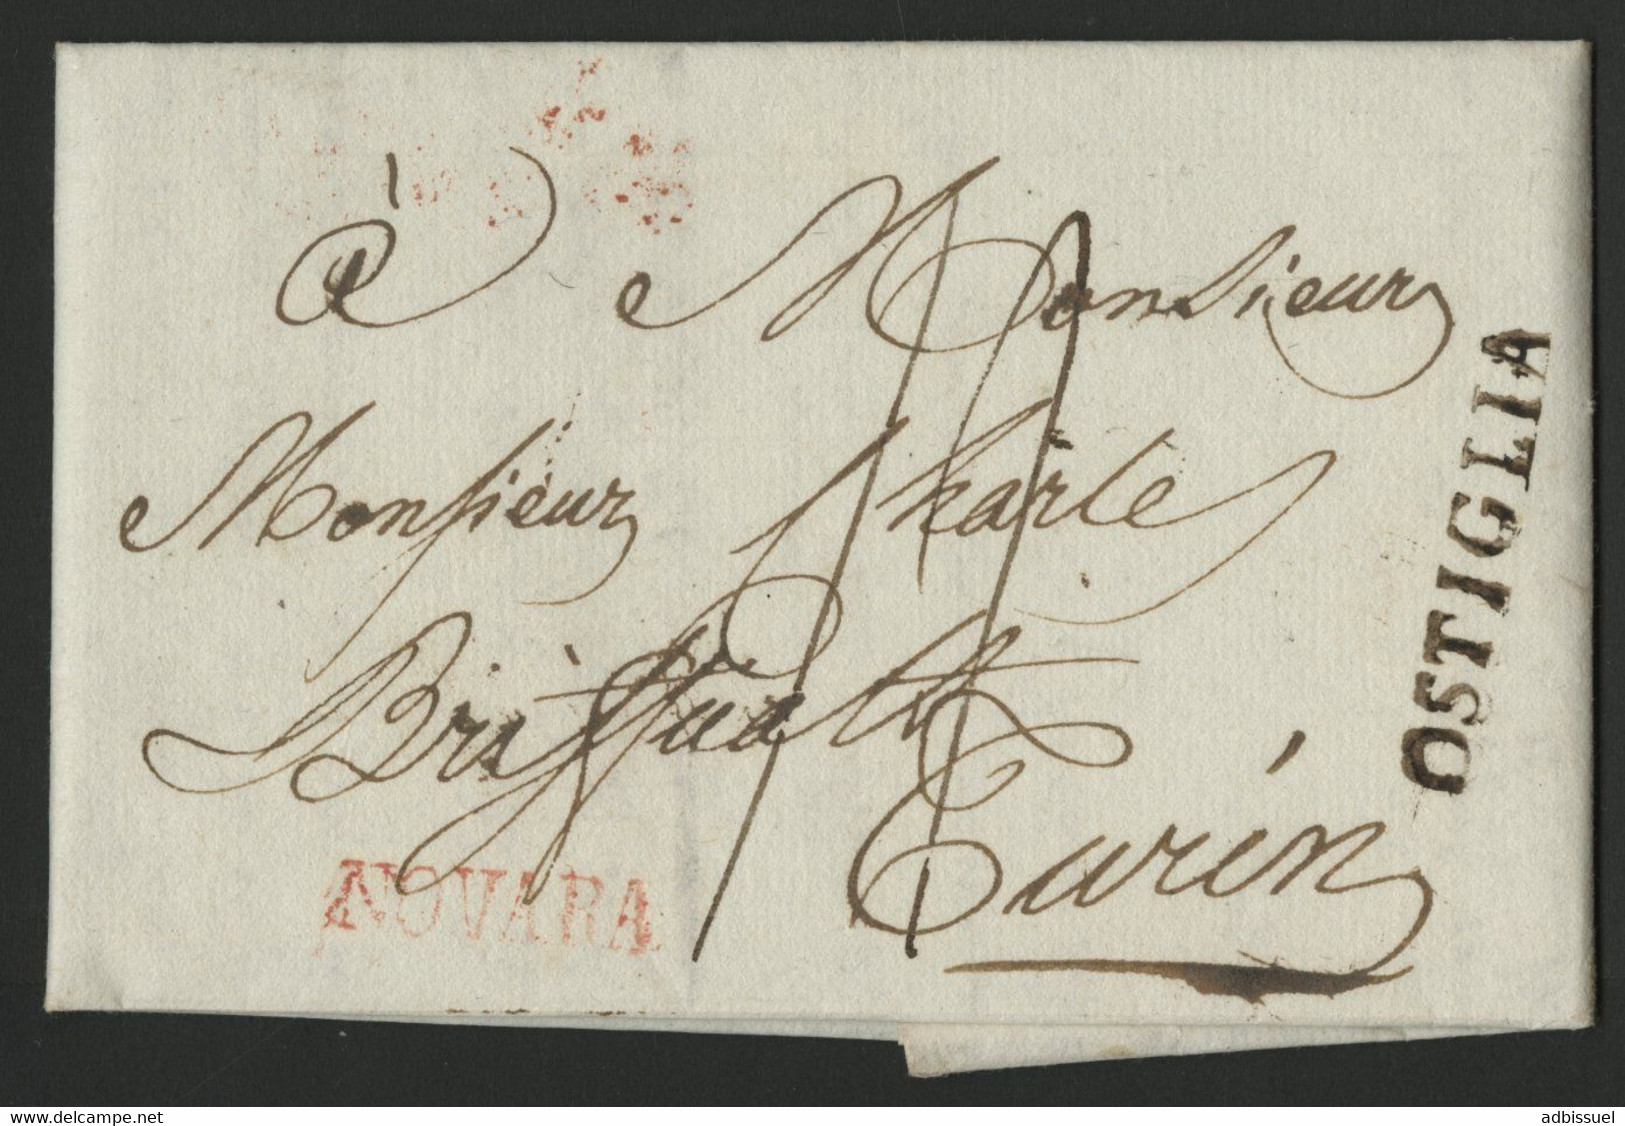 à Monsieur
Monsieur Charle
Briffault
Turin
NOVARA
OSTIGLIA
www.delcampe.net
adbissuel